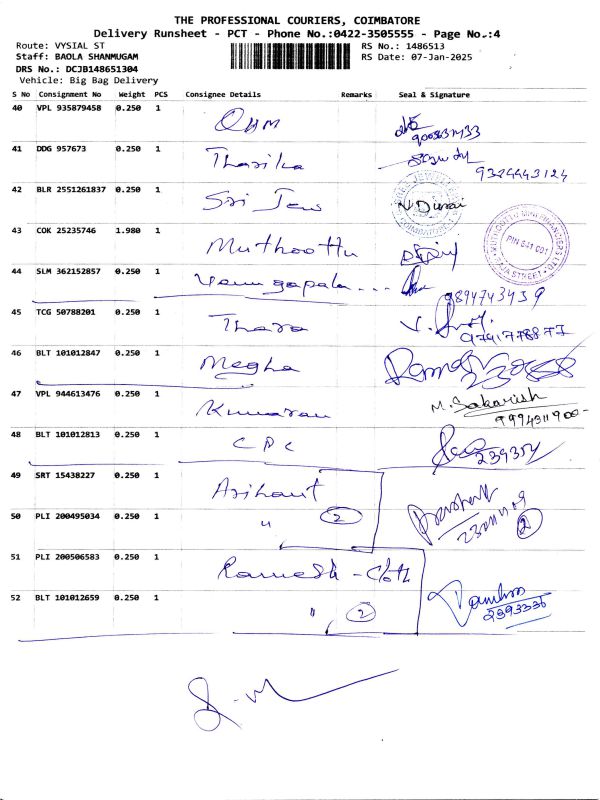 THE PROFESSIONAL COURIERS, COIMBATORE
Delivery Runsheet - PCT - Phone No.:0422-3505555 - Page No.:4
Route: VYSIAL ST RS No.: 1486513
Staff: BAOLA SHANMUGAM RS Date: 07-Jan-2025
DRS No.: DCJB148651304
Vehicle: Big Bag Delivery
S No Consignment No Weight PCS Consignee Details Remarks Seal & Signature
40 VPL 935879458 0.250 1
41 DDG 957673 0.250 1 Tharika
9324443124
42 BLR 2551261837 0.250 1 Sri Jew N Durai
43 COK 25235746 1.980 1 Muthoottu
PIN 641 001
44 SLM 362152857 0.250 1
9894743439
45 TCG 50788201 0.250 1 Thara
46 BLT 101012847 0.250 1 Megha
47 VPL 944613476 0.250 1 Kumaran
9994311900-
48 BLT 101012813 0.250 1 CPC
239354
49 SRT 15438227 0.250 1 Arihant
50 PLI 200495034 0.250 1 " 2
2
51 PLI 200506583 0.250 1 Ramesh - Cloth
52 BLT 101012659 0.250 1 " 2
2393336